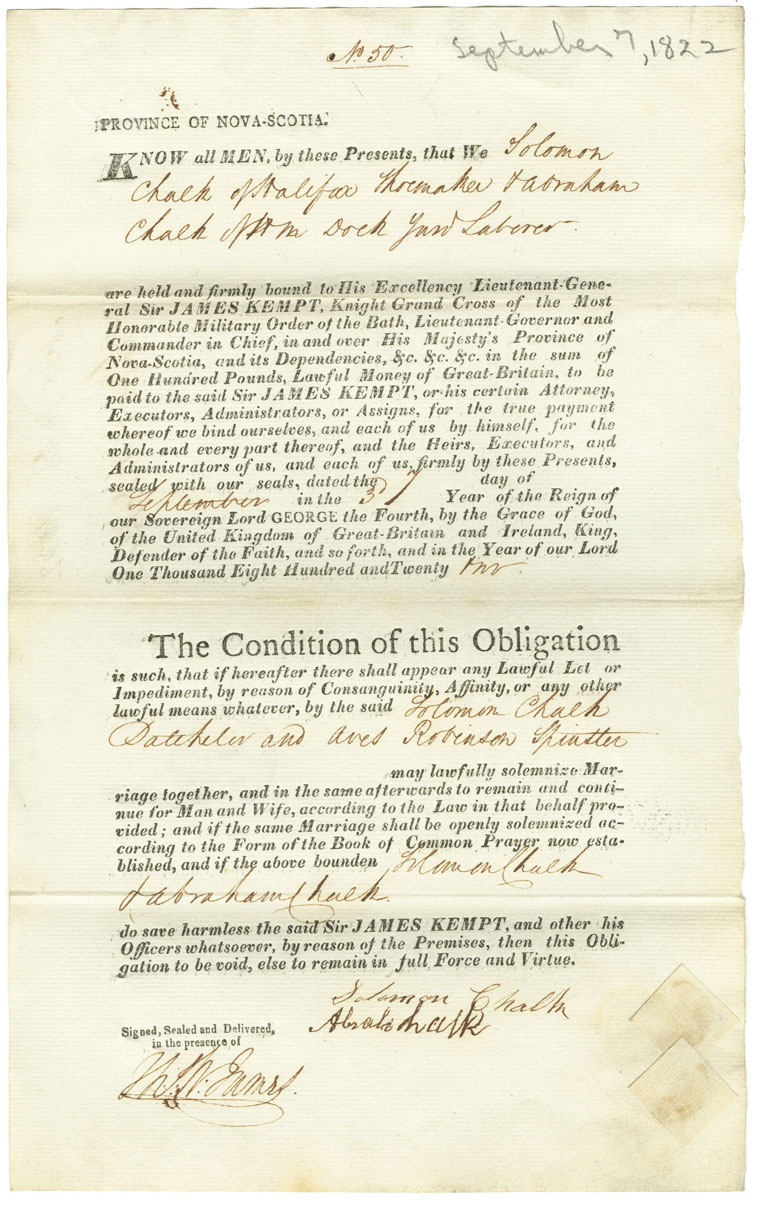 No 50.
September 7, 1822
PROVINCE OF NOVA-SCOTIA.
KNOW all MEN, by these Presents, that We Solomon
Chalk of Halifax Shoemaker & Abraham
Chalk of HM Dock Yard Laborer.
are held and firmly bound to His Excellency Lieutenant-Gene-
ral Sir JAMES KEMPT, Knight Grand Cross of the Most
Honorable Military Order of the Bath, Lieutenant-Governor and
Commander in Chief, in and over His Majesty's Province of
Nova-Scotia, and its Dependencies, &c. &c. &c. in the sum of
One Hundred Pounds, Lawful Money of Great-Britain, to be
paid to the said Sir JAMES KEMPT, or his certain Attorney,
Executors, Administrators, or Assigns, for the true payment
whereof we bind ourselves, and each of us by himself, for the
whole and every part thereof, and the Heirs, Executors, and
Administrators of us, and each of us, firmly by these Presents,
sealed with our seals, dated the 7 day of
September in the 3 Year of the Reign of
our Sovereign Lord GEORGE the Fourth, by the Grace of God,
of the United Kingdom of Great-Britain and Ireland, King,
Defender of the Faith, and so forth, and in the Year of our Lord
One Thousand Eight Hundred and Twenty two.
The Condition of this Obligation
is such, that if hereafter there shall appear any Lawful Let or
Impediment, by reason of Consanguinity, Affinity, or any other
lawful means whatever, by the said Solomon Chalk
Batchelor and Aves Robinson Spinster
may lawfully solemnize Mar-
riage together, and in the same afterwards to remain and conti-
nue for Man and Wife, according to the Law in that behalf pro-
vided; and if the same Marriage shall be openly solemnized ac-
cording to the Form of the Book of Common Prayer now esta-
blished, and if the above bounden Solomon Chalk
& Abraham Chalk.
do save harmless the said Sir JAMES KEMPT, and other his
Officers whatsoever, by reason of the Premises, then this Obli-
gation to be void, else to remain in full Force and Virtue.
Solomon Chalk
Signed, Sealed and Delivered,
in the presence of
James.